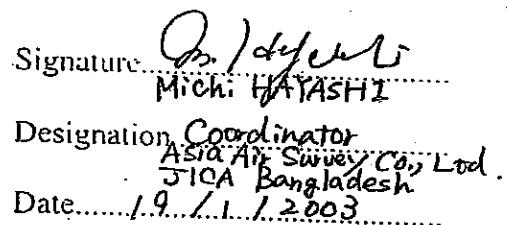 Signature
Michi HAYASHI
Designation Coordinator
Asia Air Survey Co., Ltd.
JICA Bangladesh
Date......19 / 1 / 2003